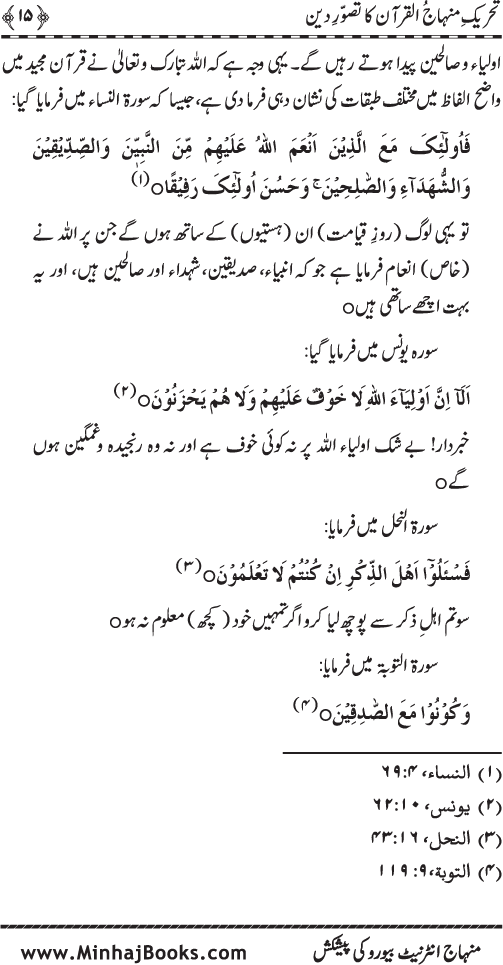 تحریکِ منہاجُ القرآن کا تصوّرِ دین ﴿۱۵﴾
اولیاء و صالحین پیدا ہوتے رہیں گے۔ یہی وجہ ہے کہ اللہ تبارک و تعالیٰ نے قرآن مجید میں
واضح الفاظ میں مختلف طبقات کی نشان دہی فرما دی ہے، جیسا کہ سورۃ النساء میں فرمایا گیا:
فَاُولٰٓئِکَ مَعَ الَّذِیْنَ اَنْعَمَ اللہُ عَلَیْھِمْ مِّنَ النَّبِیّٖنَ وَالصِّدِّیْقِیْنَ
وَالشُّھَدَآءِ وَالصّٰلِحِیْنَ ۚ وَحَسُنَ اُولٰٓئِکَ رَفِیْقًاo(۱)
تو یہی لوگ (روزِ قیامت) ان (ہستیوں) کے ساتھ ہوں گے جن پر اللہ نے
(خاص) انعام فرمایا ہے جو کہ انبیاء، صدیقین، شہداء اور صالحین ہیں، اور یہ
بہت اچھے ساتھی ہیںo
سورہ یونس میں فرمایا گیا:
اَلَآ اِنَّ اَوْلِیَآءَ اللہِ لَا خَوْفٌ عَلَیْھِمْ وَلَا ھُمْ یَحْزَنُوْنَo(۲)
خبردار! بے شک اولیاء اللہ پر نہ کوئی خوف ہے اور نہ وہ رنجیدہ و غمگین ہوں
گےo
سورۃ النحل میں فرمایا:
فَسْئَلُوْٓا اَھْلَ الذِّکْرِ اِنْ کُنْتُمْ لَا تَعْلَمُوْنَo(۳)
سو تم اہلِ ذکر سے پوچھ لیا کرو اگر تمہیں خود (کچھ) معلوم نہ ہوo
سورۃ التوبۃ میں فرمایا:
وَکُوْنُوْا مَعَ الصّٰدِقِیْنَo(۴)
(۱) النساء، ۴:۶۹
(۲) یونس، ۱۰:۶۲
(۳) النحل، ۱۶:۴۳
(۴) التوبۃ، ۹:۱۱۹
منہاج انٹرنیٹ بیورو کی پیشکش www.MinhajBooks.com